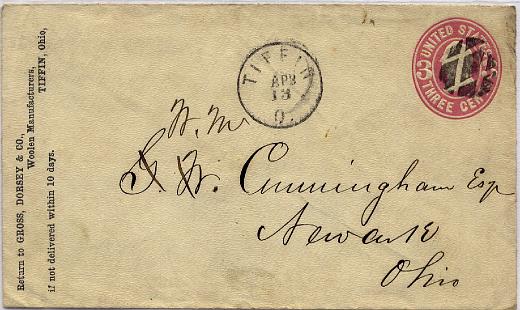 Return to GROSS, DORSEY & CO.,
Woolen Manufacturers,
TIFFIN, Ohio,
if not delivered within 10 days.
TIFFIN
APR
13
O.
UNITED STATES
3
THREE CEN
W. M.
J. W. Cunningham Esq
Newark
Ohio